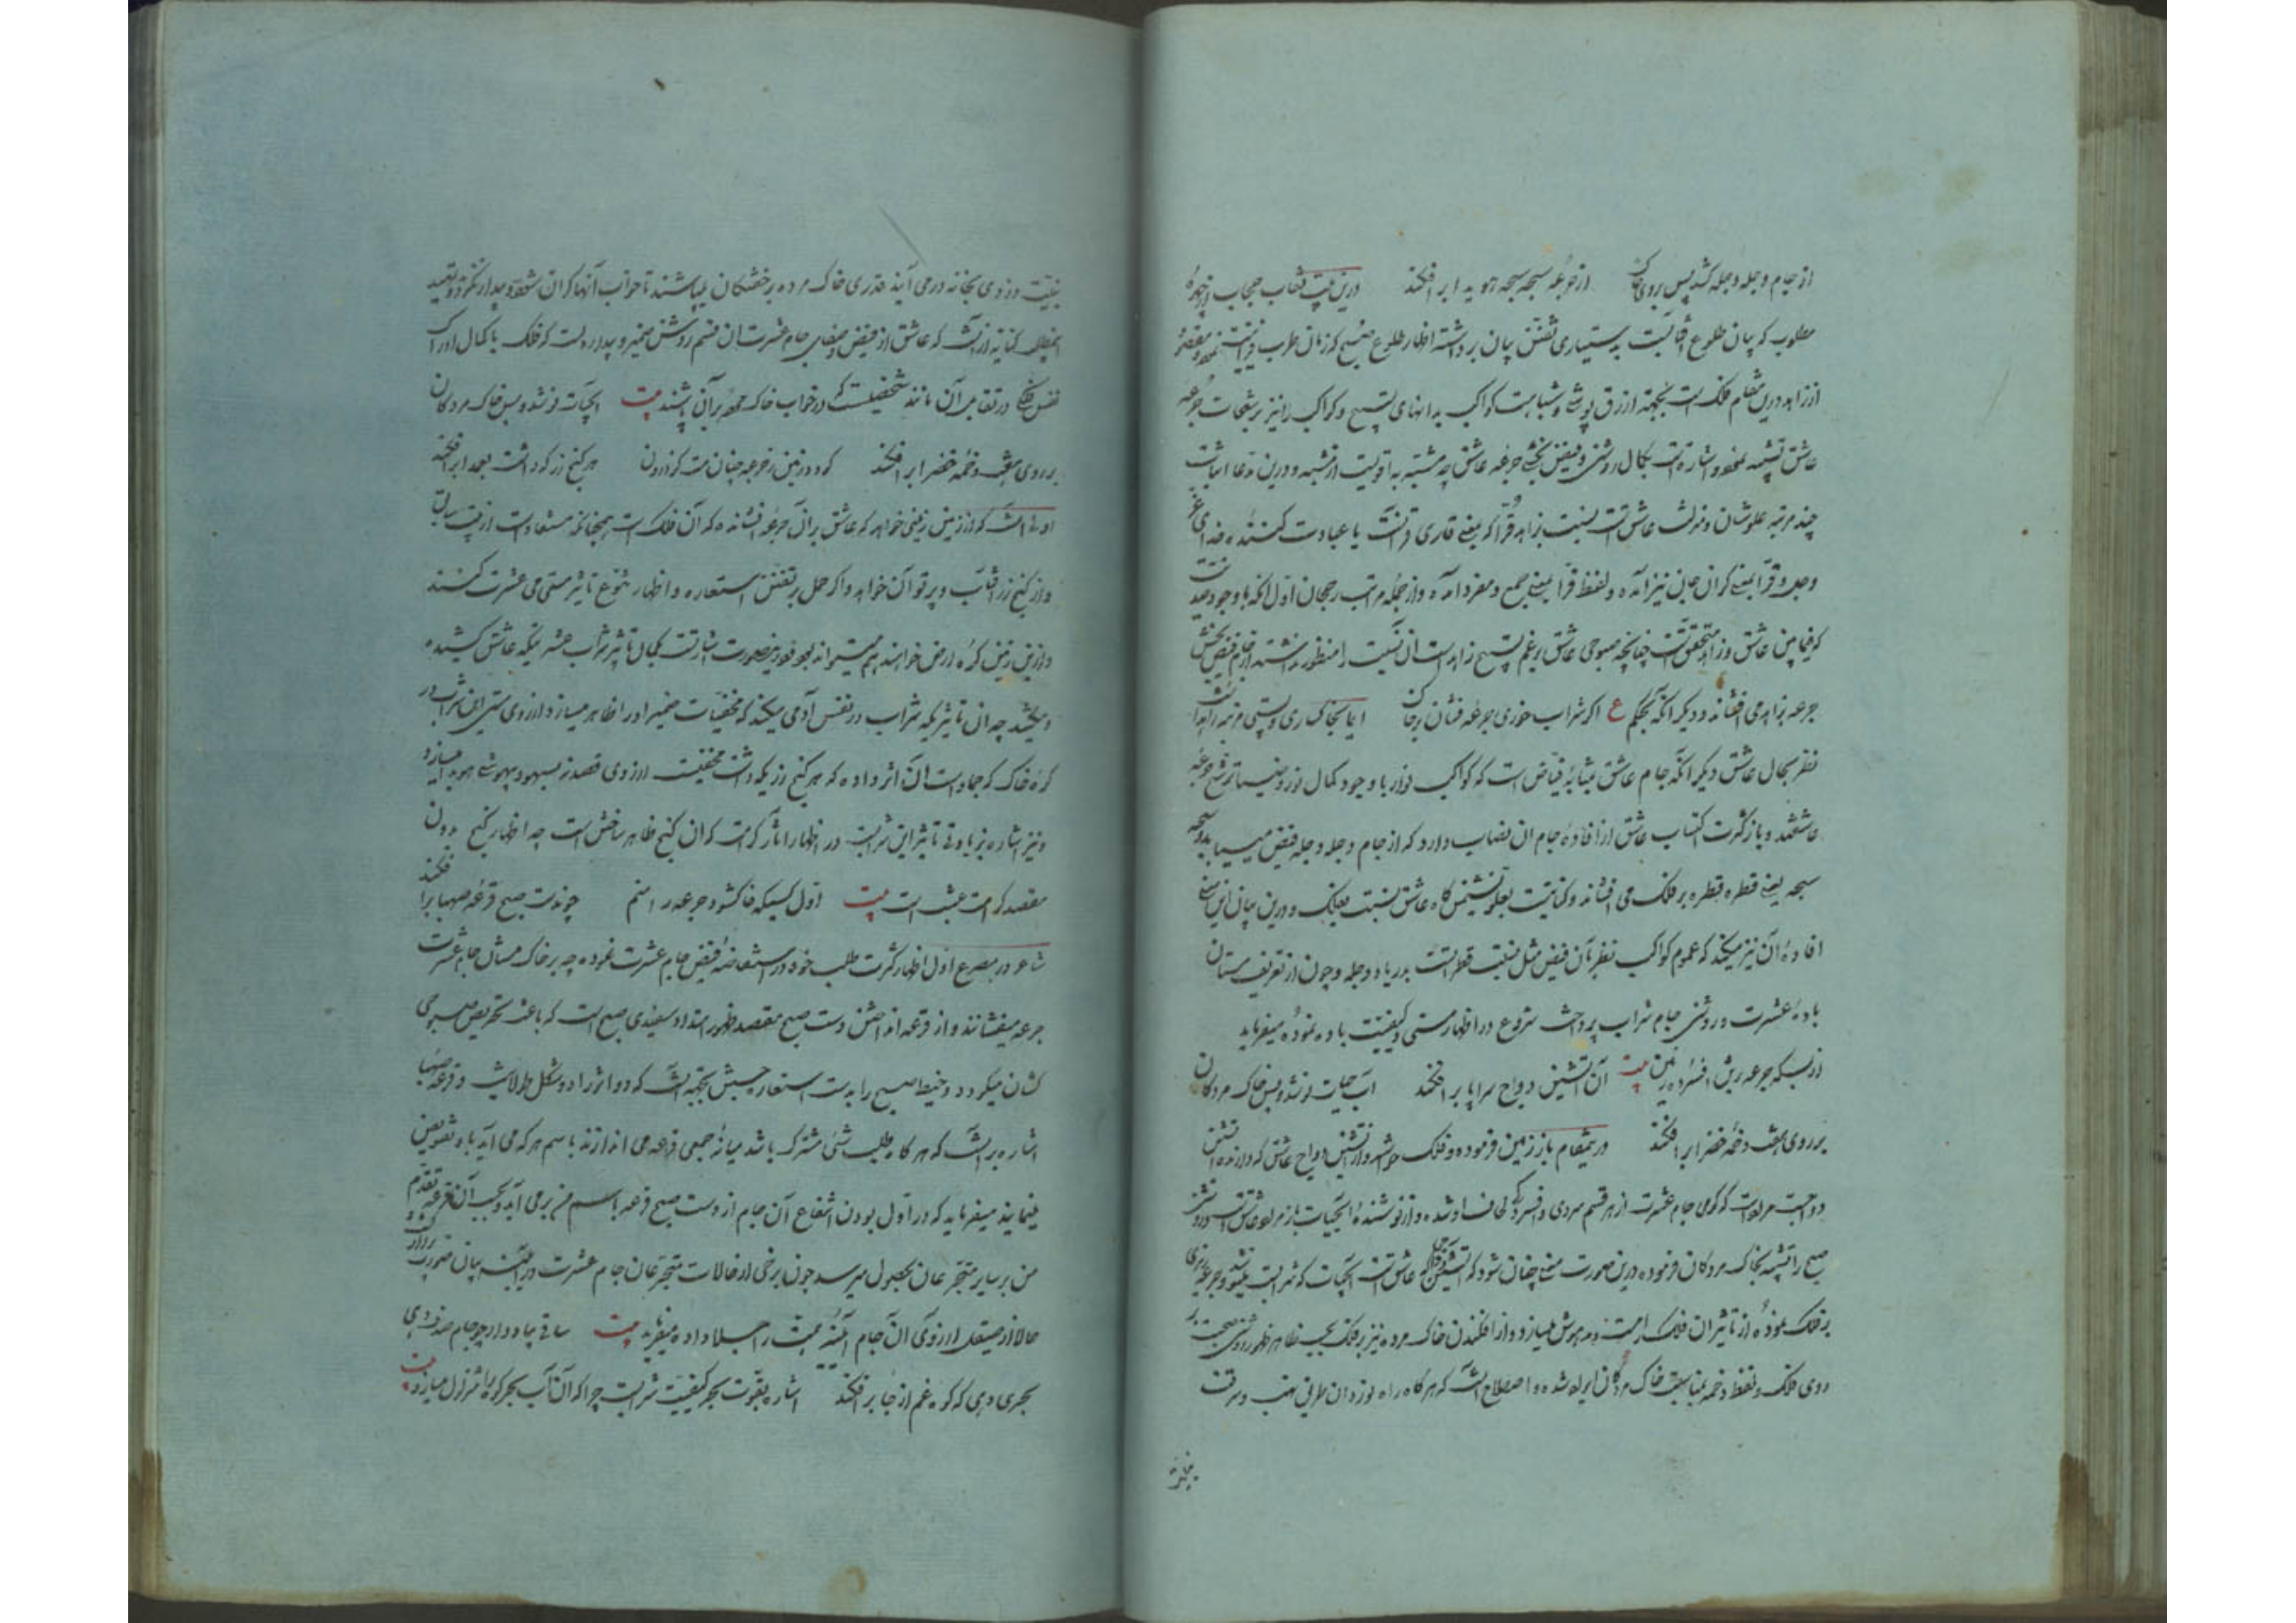 از جام دجله دجله کشد پس بروی خاک از جرعه سبحه سبحه هویدا برافکند درین بیت نقاب حجاب از چهره
مطلوب که بیان طلوع آفتابست بدستیاری تفنن بیان برداشته اظهار طلوع صبح که زمان طرب
از زاهد درین مقام فلک است بجهة ازرق پوشی و شباهت کواکب بدانهای تسبیح و کواکب را نیز برشحات جرعه
عاشق تشبیه نموده و اشاره است بکمال روشنی و فیض بخشی جرعه عاشق چه مشبه به اقویست از مشبه و درین مدعا اثبات
چند مرتبه علو شان و منزلت عاشق است بنسبت زاهد قرا که بمعنی قاری قرآنست یا عبادت کننده خدای عز
وجل و قرا بمعنی کران جانی نیز آمده و لفظ قرا بمعنی جمع و مفرد آمده و از جمله مراتب رجحان اول آنکه با وجود ضدیت
که فیما بین عاشق و زاهد متحقق است چنانچه صبوحی عاشق برغم تسبیح زاهد است آن نسبت را منظور نداشته از جام فیض بخش
جرعه بزاهد می افشاند و دیگر آنکه بحکم ع اگر شراب خوری جرعه فشان بر خاک ایما بخاکساری و پستی مرتبه زاهد است
نظر بحال عاشق دیگر آنکه جام عاشق بمثابه فیاض است که کواکب نوار با وجود کمال نور و ضیا ترشح جرعه
عاشقند و باز کثرت اکتساب عاشق از افاده جام آن نصاب دارد که از جام دجله دجله فیض میبابد و سبحه
سبحه یعنی قطره قطره بر فلک می افشاند و کنایتست بعلو نشیمن گاه عاشق نسبت بفلک و درین بیان این معنی
افاده آن نیز میکند که عموم کواکب نظر بآن فیض مثل نسبت قطره است بدریا و دجله و چون از تعریف مستان
باده عشرت و روشنی جام شراب پرداخت شروع در اظهار مستی و کیفیت باده نموده میفرماید
بیت از بسکه جرعه بر تن افسرده زمین آن آتشین دواج سراپا برافکند آب حیات نوشد و پس خاک مردگان
بر روی هفت دخمه خضرا برافکند درینمقام باز زمین فرموده و فلک خواسته و از آتشین دواج عاشق که دارنده آتشین
دواجست مراد است که گرمی جام عشرت از هر قسم سردی و افسردگی لحاف او شده و از نوشنده آبحیات باز مراد عاشق است
صبح را تشبیه بخاک مردگان فرموده درین صورت معنی چنان شود که آتشین دواج عاشق است آبحیات که شرابست مینوشد و جرعه ریزی
بر فلک نموده از تاثیر آن فلک را مست و مدهوش میسازد و از افکندن خاک مرده نیز بر فلک بحسب ظاهر ظهور روشنی صبحست بر
روی فلک و لفظ دخمه بمناسبت خاک مردگان ایراد شده و اصطلاح است که هر گاه راه نوردان طریق نهب و سرقت
بنیت
بنیت دزدی بخانه در می آیند قدری خاک مرده بر خفتگان میپاشند تا خواب آنها گران شده و بیدار نگردند و تقیید
اینمطلب کنایه از آنست که عاشق از فیض و صفای جام عشرت آن قسم روشن ضمیر و بیدار دلست که فلک با کمال ادراک
نفس فلکی در تقابل آن مانند شخصیست که در خواب خاک مرده بر آن پاشند بیت آبحیات نوشد و پس خاک مردگان
بر روی هفت دخمه خضرا برافکند گردد زمین ز جرعه چنان مست کز درون هر گنج زر که داشت بعمدا برافکند
اولی آنست که از زمین زمینی خواهد که عاشق بر آن جرعه افشانده که آن فلک است همچنانکه مستفاد است از بیت سابق
و از گنج زر آفتاب و پرتو آن خواهد و اگر حمل بر تفنن استعاره و اظهار تنوع تاثیر مستی می عشرت کنند
و ازین زمین کره ارض خواهند هم میتواند بود و درینصورت اشارتست بکمال تاثیر شراب عشرتیکه عاشق کشیده
و میکشد چه آن تاثیریکه شراب در نفس آدمی میکند که مخفیات ضمیر او را ظاهر میسازد از روی مستی این شراب در
کره خاک که جماد است آن اثر داده که هر گنج زریکه داشت مخفیست از روی قصد نه بسهو و بیهوشی هویدا میسازد
و نیز اشاره بزیادتی تاثیر این شرابست در اظهار آثار کرامت که آن گنج ظاهر ساختن است چه اظهار گنج بدون
مقصد کرامت عبث است بیت اول کسیکه خاک شود جرعه را منم چون دست صبح قرعه صهبا برافکند
شاعر در مصرع اول اظهار کثرت طلب خود در استفاضه فیض جام عشرت نموده چه بر خاک مسان جام عشرت
جرعه میفشانند و از قرعه انداختن دست صبح مقصد ظهور امتداد سفیدی صبح است که باعث تحریص صبوحی
کشان میگردد و خیط صبح را بدست استعاره جستن بجهة آنست که دو اثر را دو شکل طولانیست و قرعه صهبا
اشاره بر آنست که هر گاه طلب شئ مشترک باشد میانه جمعی قرعه می اندازند باسم هر که می آید باو تفویض
مینمایند میفرماید که در اول بودن انتفاع آن جام از دست صبح قرعه باسم من بر می آید و بحسب آن قرعه تقدم
من بر سایر متجرعان بحصول میرسد چون برخی از حالات متجرعان جام عشرت در آیینه بیان صورت
حالا از صیقل آرزوی آن جام آیینه محبت را جلا داده میفرماید بیت ساقی بیاد دار چو جام صدف دهی
بحری دهی که کوه غم از جا برافکند اشاره بقوت بحر کیفیت شرابست چرا که آن آب بحر کوه را متزلزل میسازد بیت